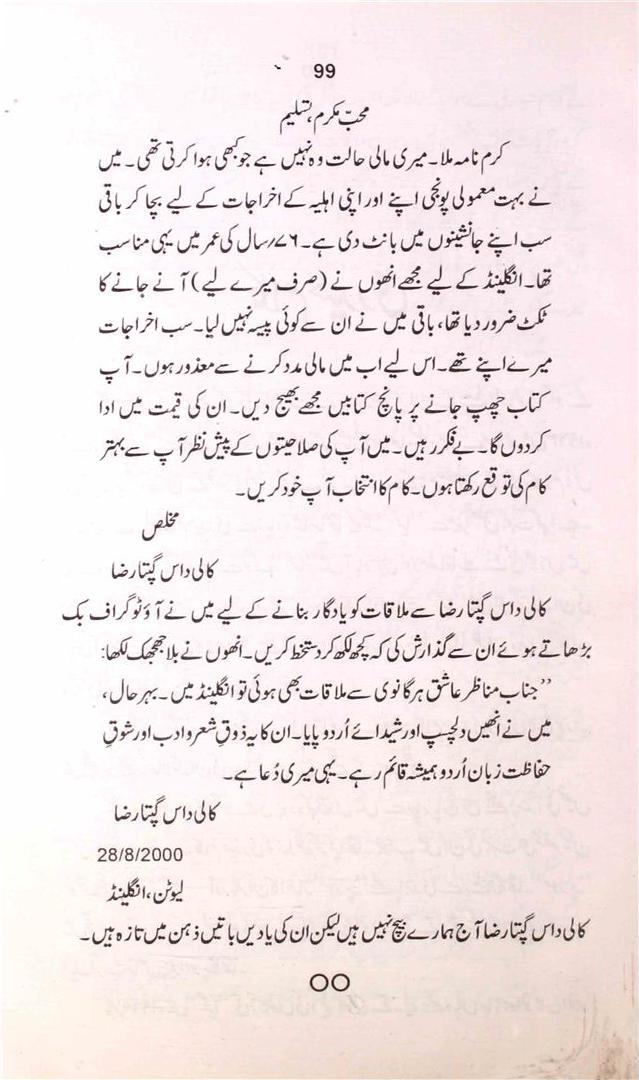 99
محبّ مکرم، تسلیم
کرم نامہ ملا۔ میری مالی حالت وہ نہیں ہے جو کبھی ہوا کرتی تھی۔ میں
نے بہت معمولی پونجی اپنے اور اپنی اہلیہ کے اخراجات کے لیے بچا کر باقی
سب اپنے جانشینوں میں بانٹ دی ہے۔ ۷۶/سال کی عمر میں یہی مناسب
تھا۔ انگلینڈ کے لیے مجھے انھوں نے (صرف میرے لیے) آنے جانے کا
ٹکٹ ضرور دیا تھا، باقی میں نے ان سے کوئی پیسہ نہیں لیا۔ سب اخراجات
میرے اپنے تھے۔ اس لیے اب میں مالی مدد کرنے سے معذور ہوں۔ آپ
کتاب چھپ جانے پر پانچ کتابیں مجھے بھیج دیں۔ ان کی قیمت میں ادا
کردوں گا۔ بے فکر رہیں۔ میں آپ کی صلاحیتوں کے پیش نظر آپ سے بہتر
کام کی توقع رکھتا ہوں۔ کام کا انتخاب آپ خود کریں۔
مخلص
کالی داس گپتا رضا
کالی داس گپتا رضا سے ملاقات کو یادگار بنانے کے لیے میں نے آؤٹو گراف بک
بڑھاتے ہوئے ان سے گذارش کی کہ کچھ لکھ کر دستخط کریں۔ انھوں نے بلا جھجھک لکھا:
”جناب مناظر عاشق ہرگانوی سے ملاقات بھی ہوئی تو انگلینڈ میں۔ بہر حال،
میں نے انھیں دلچسپ اور شیدائے اُردو پایا۔ ان کا یہ ذوقِ شعر و ادب اور شوقِ
حفاظت زبان اُردو ہمیشہ قائم رہے۔ یہی میری دُعا ہے۔
کالی داس گپتا رضا
28/8/2000
لیوٹن، انگلینڈ
کالی داس گپتا رضا آج ہمارے بیچ نہیں ہیں لیکن ان کی یادیں باتیں ذہن میں تازہ ہیں۔